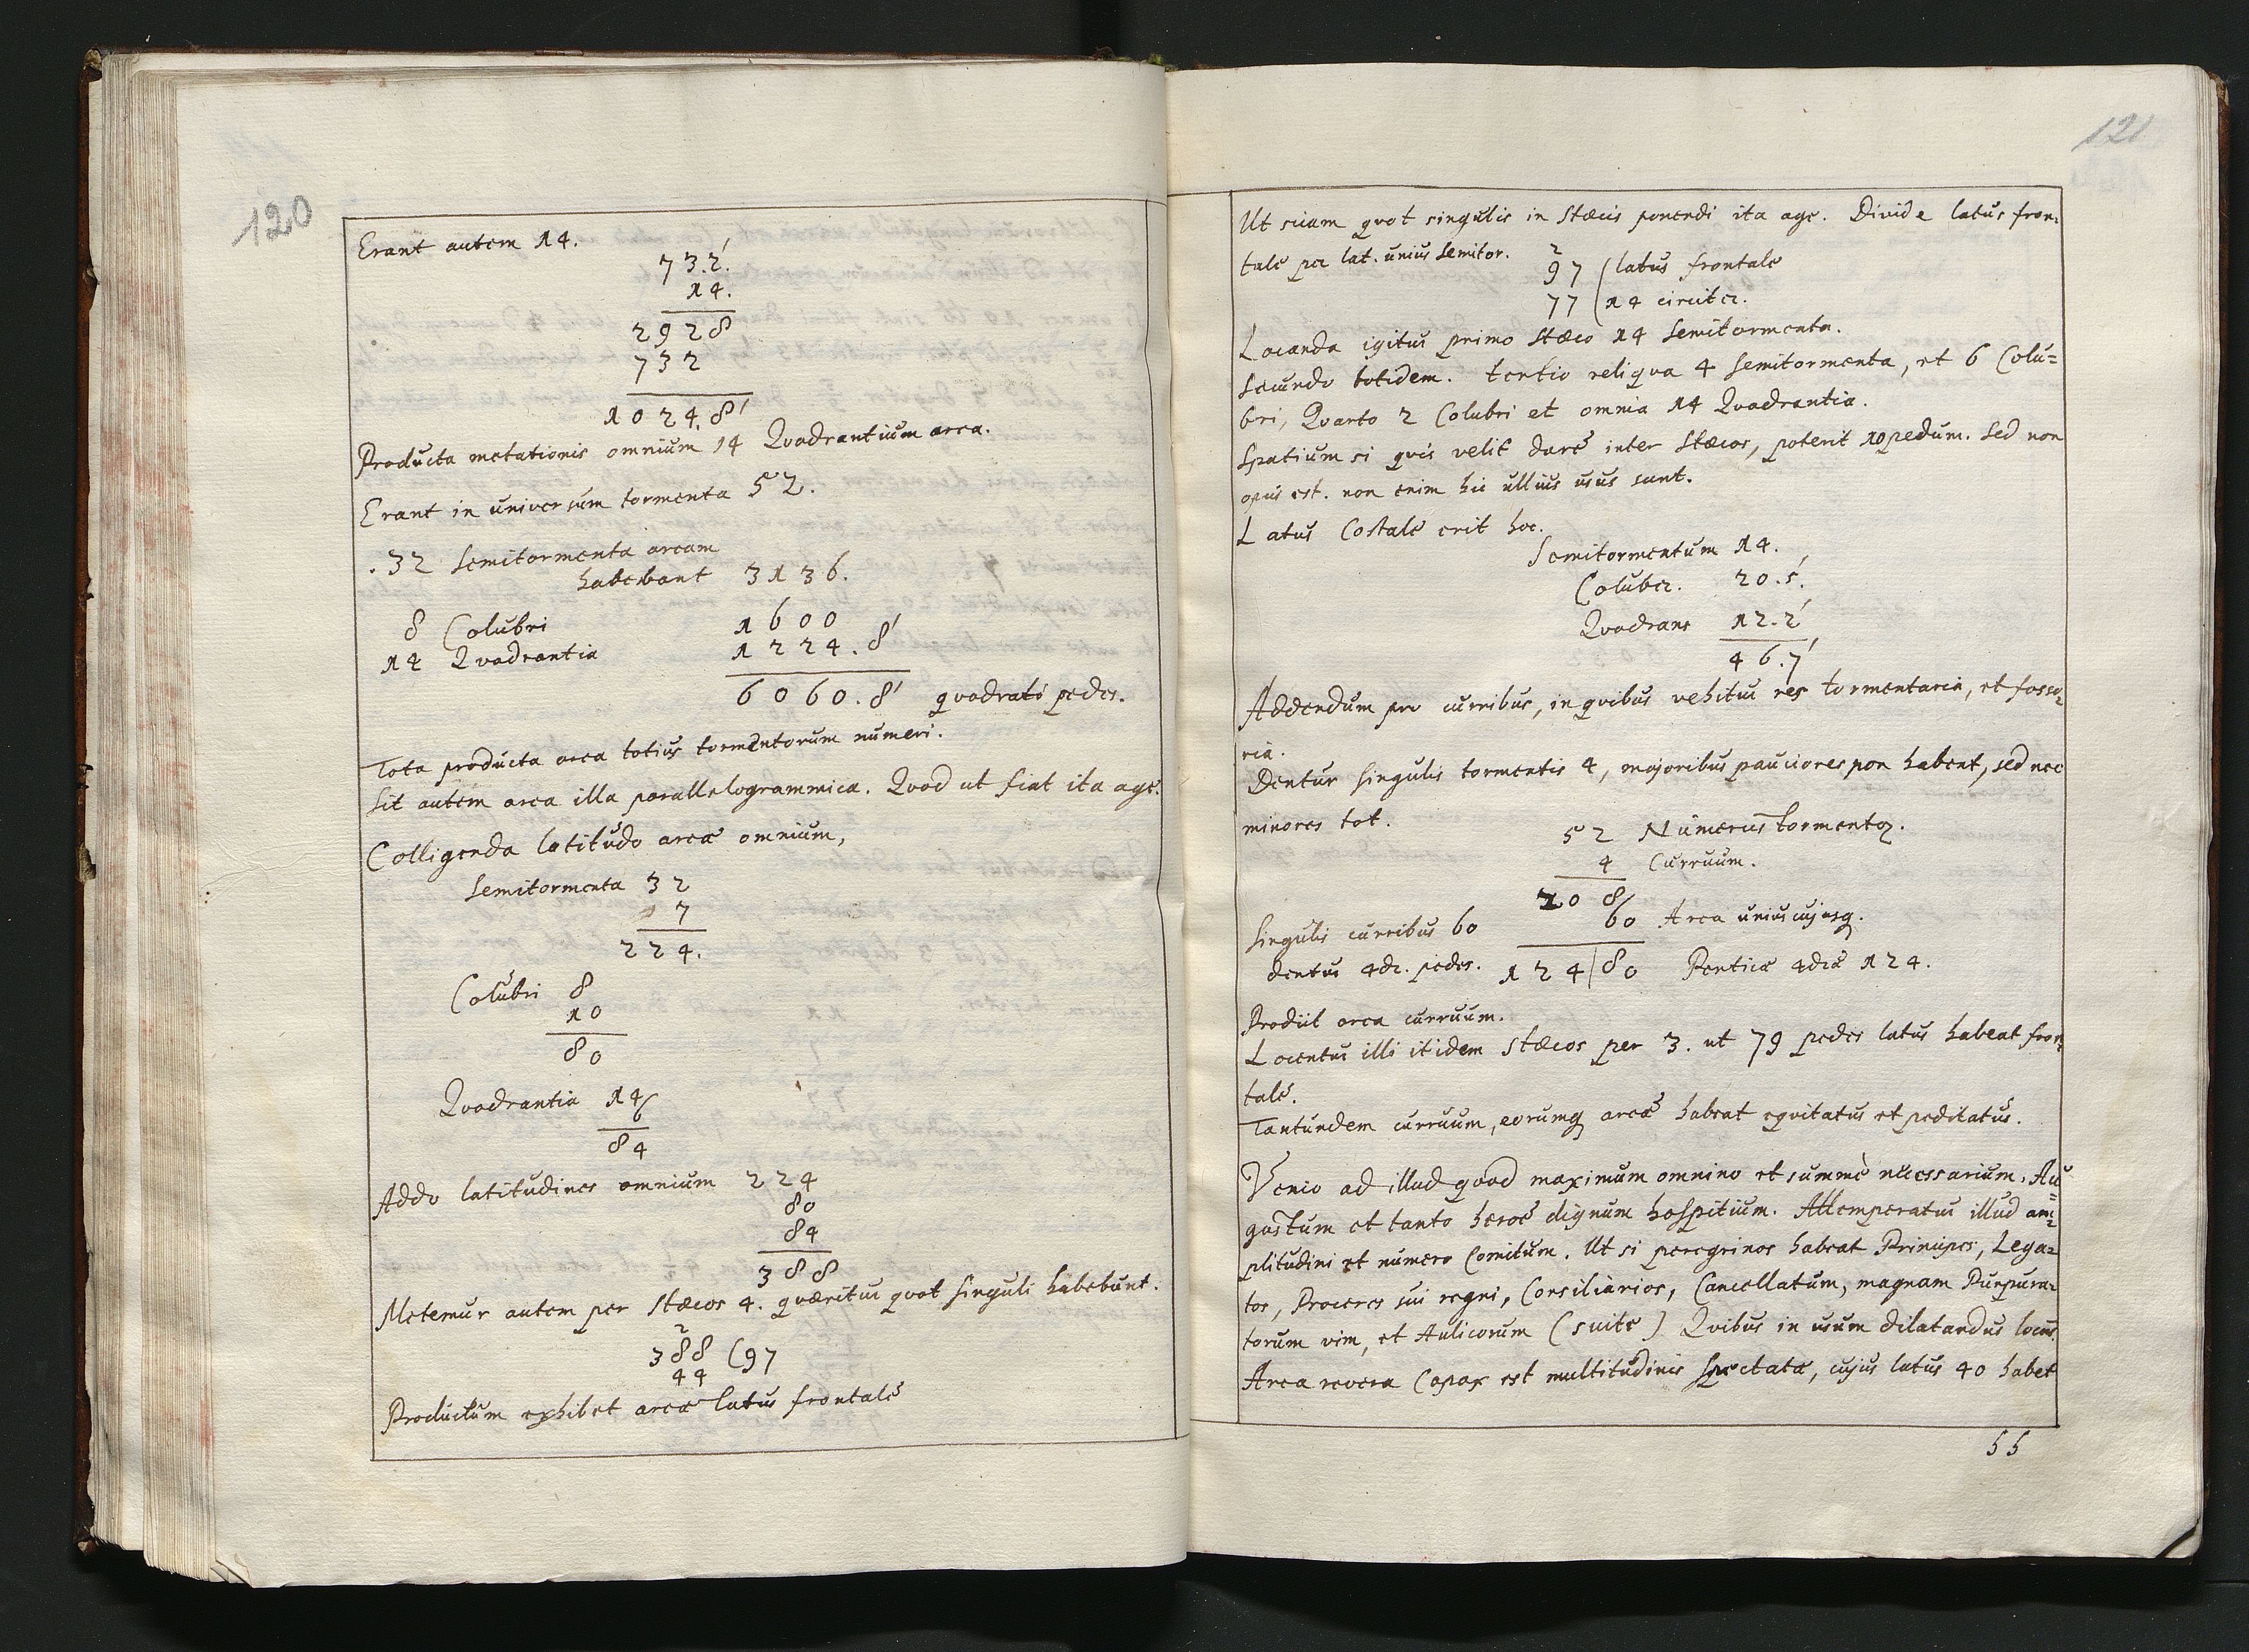 120
Erant autem 14.
73.2'.
14.
2928
732
1024.8'
Producta metationis omnium 14 Quadrantium area.
Erant in universum tormenta 52.
.32 Semitormenta aream
habebant 3136.
8 Colubri 1600
14 Quadrantia 1224.8'
6060.8' quadrati pedes.
Tota producta area totius tormentorum numeri.
Sit autem area illa parallelogrammica. Quod ut fiat ita age.
Colligenda latitudo areae omnium,
Semitormenta 32
7
224.
Colubri 8
10
80
Quadrantia 14
6
84
Addo latitudines omnium 224
80
84
388
Metemur autem per stoecos 4. quaeritur quot singuli habebunt.
2
388 (97
44
Productum exhibet areae latus frontale
121
Ut sciam quot singulis in stoecis ponendi ita age. Divide latus fron:
tale per lat. unius Semitor.
2
97 (latus frontale
77 (14 circiter.
Locanda igitur primo stoeco 14 Semitormenta.
Secundo totidem. tertio reliqua 4 Semitormenta, et 6 Colu=
bri, Quarto 2 Colubri et omnia 14 Quadrantia.
Spatium si quis velit dare inter stoecos, poterit 10 pedum. Sed non
opus est. non enim hic ullius usus sunt.
Latus Costale erit hoc.
Semitormentum 14.
Coluber. 20.5'.
Quadrans 12.2'
46.7'
Addendum pro curribus, in quibus vehitur res tormentaria, et fosso=
ria.
Dentur singulis tormentis 4, majoribus pauciores non habent, sed nec
minores tot.
52 Numerus tormentoꝝ.
4 Curruum.
208
Singulis curribus 60
60 Area uniuscujusq.
dentur 4dr. pedes. 124|80 Perticae 4drae 124.
Prodiit area curruum.
Locentur illi itidem stoecos per 3. ut 79 pedes latus habeat fron=
tale.
Tantundem curruum, eorumq areae habeat equitatus et peditatus.
Venio ad illud quod maximum omnino et summè necessarium. Au=
gustum et tanto heroe dignum hospitium. Attemperatur illud am=
plitudini et numero Comitum. Ut si peregrinos habeat Principes, Lega=
tos, Proceres sui regni, Consiliarios, Cancellatum, magnam Purpura=
torum vim, et Aulicorum (suite) Quibus in usum dilatandus locus.
Area revera Capax est multitudinis spectatae, cujus latus 40 habet
55